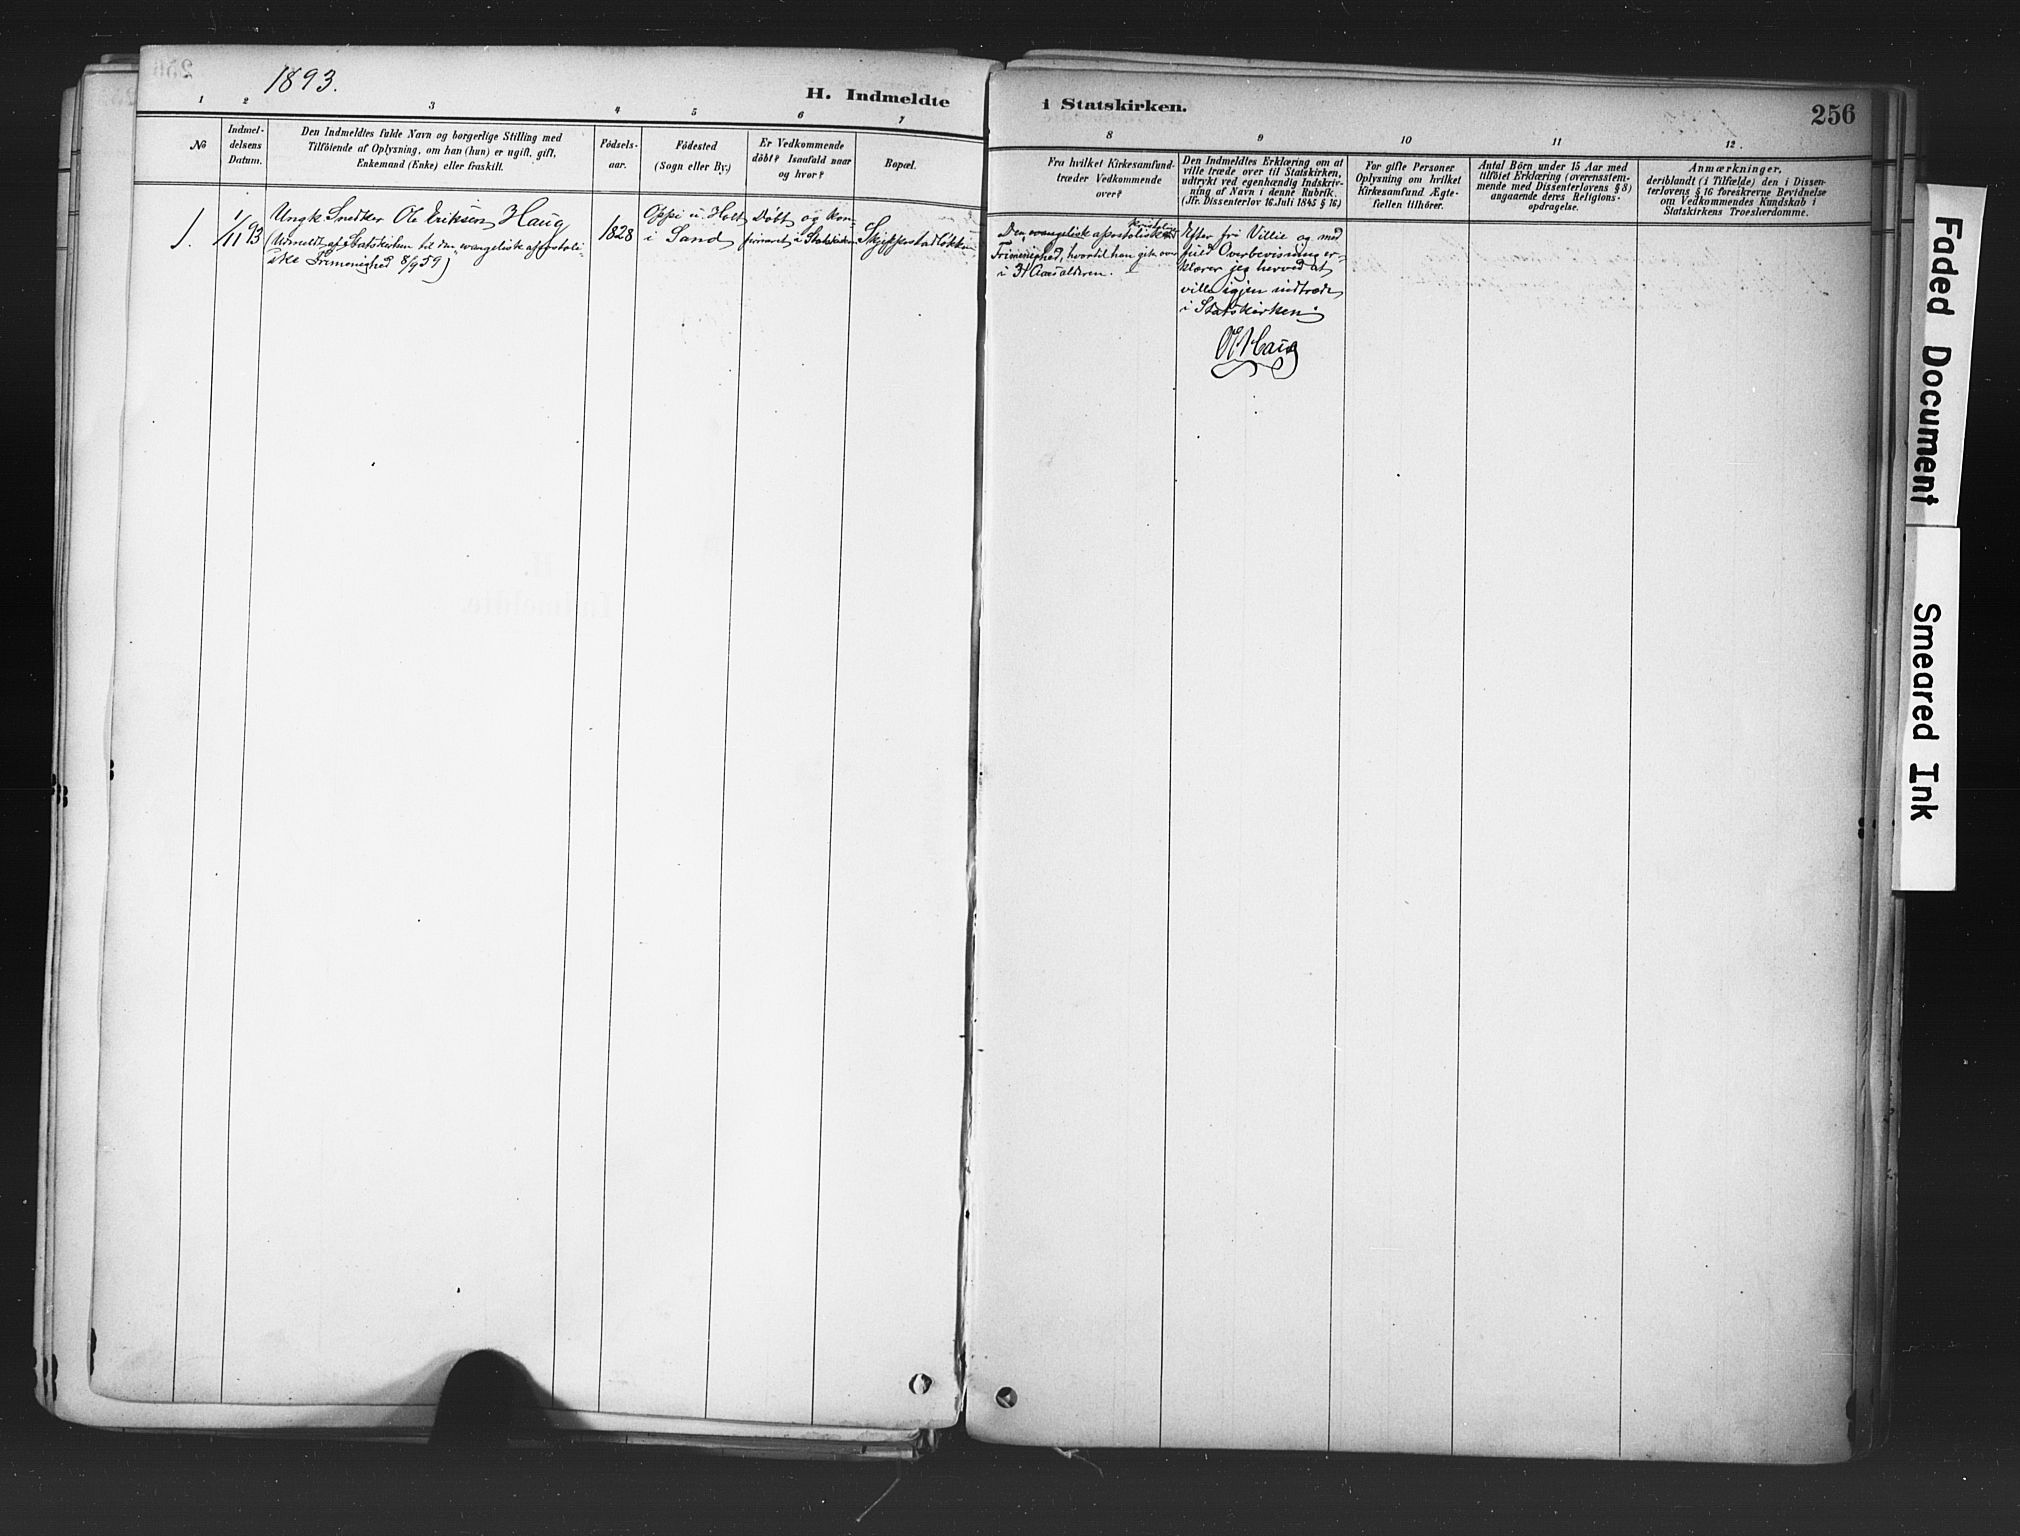 1893.
H. Indmeldte
i Statskirken.
256
1 2 3 4 5 6 7
8 9 10 11 12
No
Indmel-
delsens
Datum.
Den Indmeldtes fulde Navn og borgerlige Stilling med
Tilföiende af Oplysning, om han (hun) er ugift, gift,
Enkemand (Enke) eller fraskilt.
Födsels-
aar.
Födested
(Sogn eller By.)
Er Vedkommende
döbt? Isaafald naar
og hvor?
Bopæl.
Fra hvilket Kirkesamfund
træder Vedkommende
over?
Den Indmeldtes Erklæring om at
ville træde over til Statskirken,
udtrykt ved egenhændig Indskriv-
ning af Navn i denne Rubrik.
(Jfr. Dissenterlov 16 Juli 1845 § 16.)
For gifte Personer
Oplysning om hvilket
Kirkesamfund Ægte-
fællen tilhörer.
Antal Börn under 15 Aar med
tilföiet Erklæring (overensstem-
mende med Dissenterlovens § 8)
angaaende deres Religions-
opdragelse.
Anmærkninger,
deriblandt (i Tilfælde) den i Dissen-
terlovens § 16 foreskrevne Bevidnelse
om Vedkommendes Kundskab i
Statskirkens Troeslærdomme.
1.
1/11 93
Ungk Snedker Ole Eriksen Haug
(Udmeldt af Statskirken til den evangelisk apostoli-
ske Frimenighed 8/9 59)
1828
Oppi u. Holt
i Sand
Döbt og kon-
firmeret i Statskirken
Den evangelisk apostolisk
Frimenighed, hvortil han gik over
i 31 Aars alderen.
Efter fri Villie og med
fuld Overbevisning er-
klærer jeg herved at
ville igjen indtræde
i Statskirken.
O. Haug
Faded Document
Smeared Ink